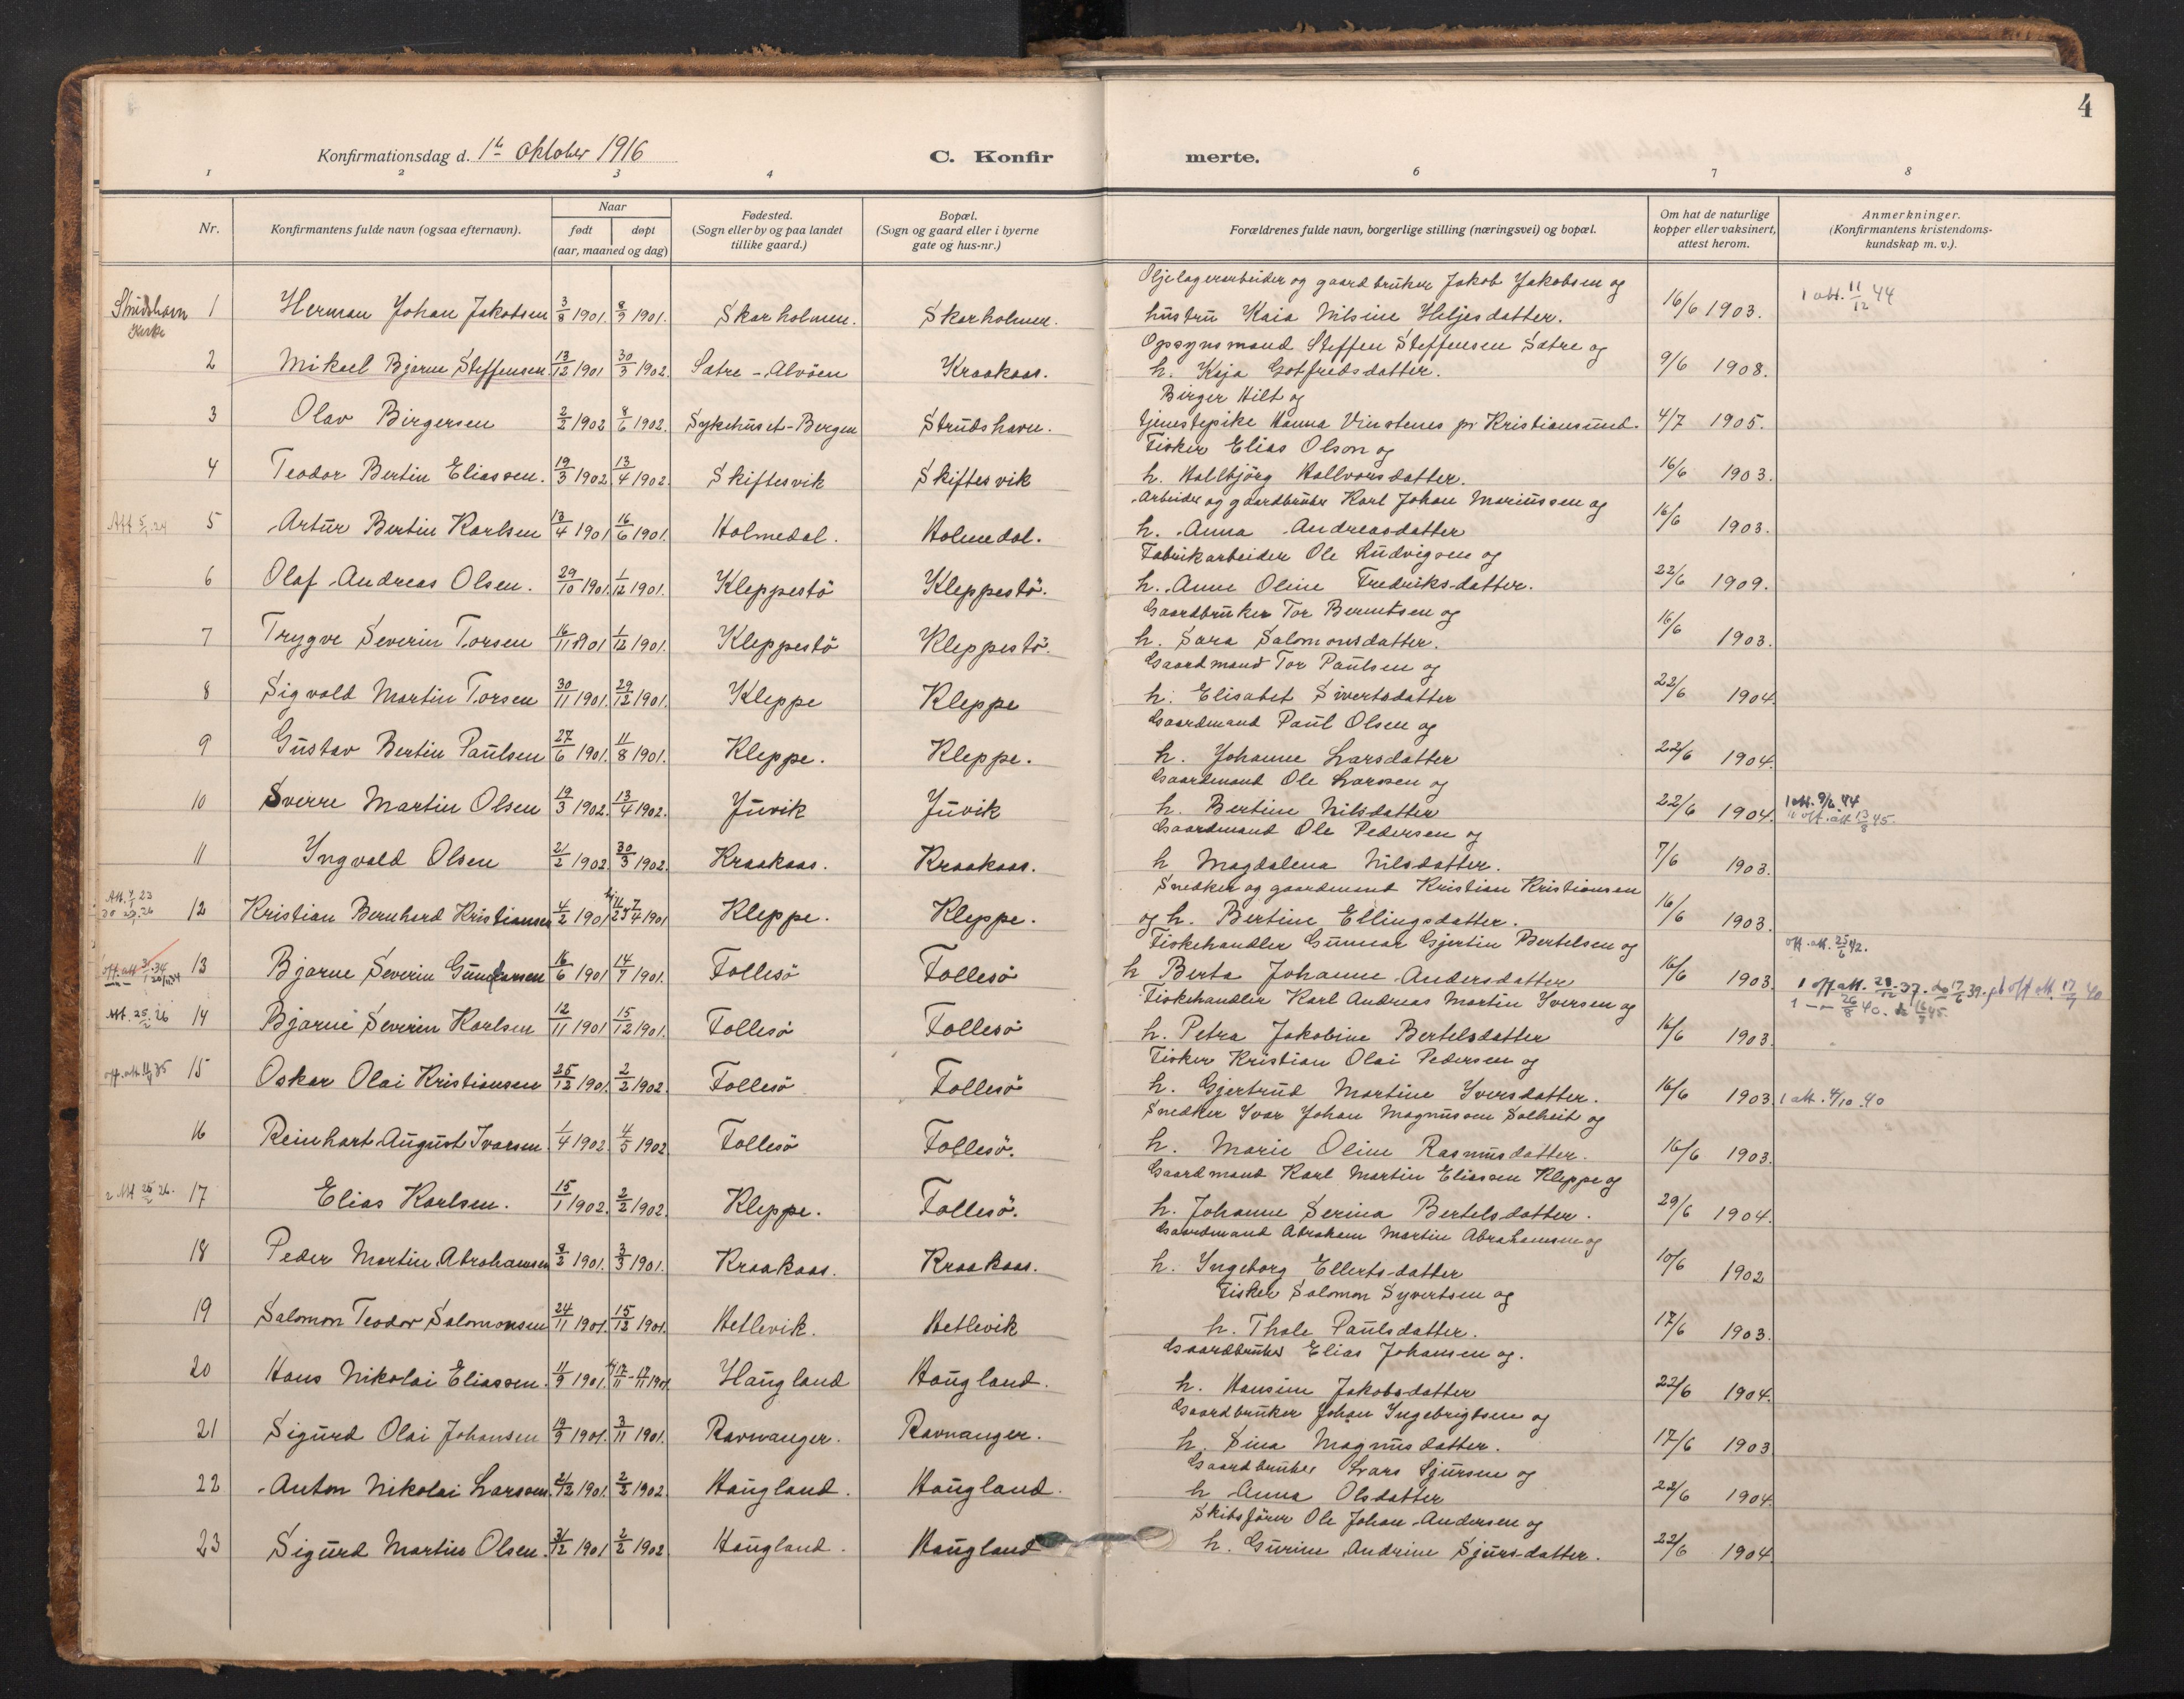 4
Konfirmationsdag d. 1te Oktober 1916 C. Konfirmerte.
1 2 3 4 6 7 8
Nr. Konfirmantens fulde navn (ogsaa efternavn). Naar født døpt (aar, maaned og dag) Fødested. (Sogn eller by og paa landet tillike gaard.) Bopæl. (Sogn og gaard eller i byerne gate og hus-nr.) Forældrenes fulde navn, borgerlige stilling (næringsvei) og bopæl. Om hat de naturlige kopper eller vaksinert, attest herom. Anmerkninger. (Konfirmantens kristendomskundskap m. v.).
Oljelagerarbeider og gaardbruker Jakob Jakobsen og
Strudshavn Kirke 1 Herman Johan Jakobsen 3/8 1901. 8/9 1901. Skarholmen. Skarholmen. hustru Kaia Nilsine Heljesdatter. 16/6 1903. 1 att. 11/12 44
Opsynsmand Steffen Steffensen Sætre og
2 Mikael Bjarne Steffensen 13/12 1901 30/3 1902. Sætre - Alvöen Kraakaas. h. Kaja Gotfredsdatter. 9/6 1908.
Birger Hilt og
3 Olav Birgersen 2/2 1902 8/6 1902. Sykehuset-Bergen Strudshavn. tjenestepike Hanna Vinstenes pr Kristiansund. 4/7 1905.
Fisker Elias Olson og
4 Teodor Bertin Eliassen. 19/3 1902 13/4 1902. Skiftesvik Skiftesvik h. Hallbjörg Hallvorsdatter. 16/6 1903.
Arbeider og gaardbruker Karl Johan Mariussen og
Att 5/ 24 5 Artur Bertin Karlsen 13/4 1901 16/6 1901. Holmedal. Holmedal. h. Anna Andreasdatter 16/6 1903.
Fabrikarbeider Ole Ludvigsen og
6 Olaf Andreas Olsen. 29/10 1901. 1/12 1901. Kleppestö Kleppestö. h. Anne Oline Fredriksdatter. 22/6 1909.
Gaardbruker Tor Berntsen og
7 Trygve Severin Torsen 16/11 1901 1/12 1901. Kleppestö Kleppestö. h. Sara Salomonsdatter. 16/6 1903.
Gaardmand Tor Paulsen og
8 Sigvald Martin Torsen 30/11 1901. 29/12 1901. Kleppe Kleppe h. Elisabet Sivertsdatter 22/6 1904.
Gaardmand Paul Olsen og
9 Gustav Bertin Paulsen 27/6 1901. 11/8 1901. Kleppe. Kleppe. h. Johanne Larsdatter 22/6 1904.
Gaardmand Ole Larssen og
10 Sverre Martin Olsen 19/3 1902. 13/4 1902. Juvik Juvik h. Bertine Nilsdatter 22/6 1904. 1 att. 9/6 44 off. att 13/8 45.
Gaardmand Ole Pedersen og
11 Yngvald Olsen 21/2 1902. 30/3 1902. Kraakaas. Kraakaas. h Magdalena Nilsdatter. 7/6 1903.
Snedker og gaardmand Kristian Kristiansen
12 Kristian Bernhard Kristiansen 4/2 1901 7/4 1901 Kleppe. Kleppe. og h. Bertine Ellingsdatter. 16/6 1903.
Fiskehandler Gunnar Gjertin Bertelsen og
13 Bjarne Severin Gunnarsen 16/6 1901 14/7 1901. Follesö Follesö h Berta Johanne Andersdatter 16/6 1903. off. att. 25/6 42.
1 off. att. 28/12 37. do 17/6 39. off att. 17/7 40
Fiskehandler Karl Andreas Martin Iversen og
Att. 25/2 26 14 Bjarne Severin Karlsen 12/11 1901 15/12 1901. Follesö Follesö h. Petra Jakobine Bertelsdatter 16/6 1903. 1 — 26/8 40.
Fisker Kristian Olai Pedersen og
15 Oskar Olai Kristiansen 25/12 1901. 2/2 1902. Follesö Follesö h. Gjertrud Martine Iversdatter. 16/6 1903 1 att. 4/10 40
Snedker Ivar Johan Magnussen Solheit og
16 Reinhart August Ivarsen. 1/4 1902. 4/5 1902 Follesö Follesö. h. Marie Oline Rasmusdatter. 16/6 1903.
Gaardmand Karl Martin Eliassen Kleppe og
2 Att 25/2 26. 17 Elias Karlsen. 15/1 1902. 2/2 1902. Kleppe. Follesö. h. Johanne Serina Bertelsdatter. 29/6 1904.
Gaardmand Abraham Martin Abrahamsen og
18 Peder Martin Abrahamsen 8/2 1901. 3/3 1901. Kraakaas. Kraakaas. h. Ingeborg Ellertsdatter 10/6 1902
Fisker Salomon Syvertsen og
19 Salomon Teodor Salomonsen 24/11 1901. 15/12 1901. Hetlevik. Hetlevik h. Thale Paulsdatter. 17/6 1903.
Gaardbruker Elias Johansen og.
20 Hans Nikolai Eliassen. 11/9 1901. 17/11 1901. Haugland Haugland. h. Hansine Jakobsdatter 22/6 1904.
Gaardbruker Johan Ingebrigtsen og
21 Sigurd Olai Johansen 19/9 1901. 3/11 1901. Ravnanger. Ravnanger. h. Sina Magnusdatter. 17/6 1903
Gaardbruker Lars Sjursen og
22 Anton Nikolai Larssen. 21/12 1901. 2/2 1902 Haugland. Haugland. h Anna Olsdatter 22/6 1904.
Skibsförer Ole Johan Andersen og
23 Sigurd Martin Olsen. 31/12 1901 2/2 1902 Haugland. Haugland h. Gurine Andrine Sjursdatter. 22/6 1904.